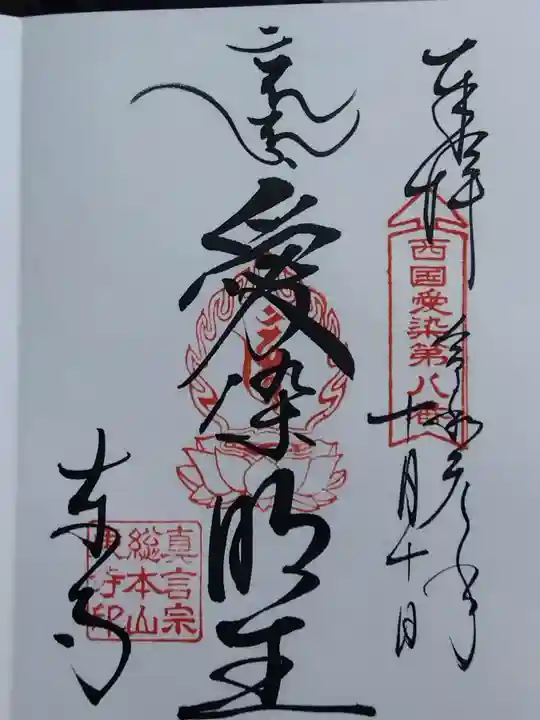 奉拝
西国愛染第八番
令和元年
十月十日
愛染明王
東寺
真言宗
総本山
東寺印